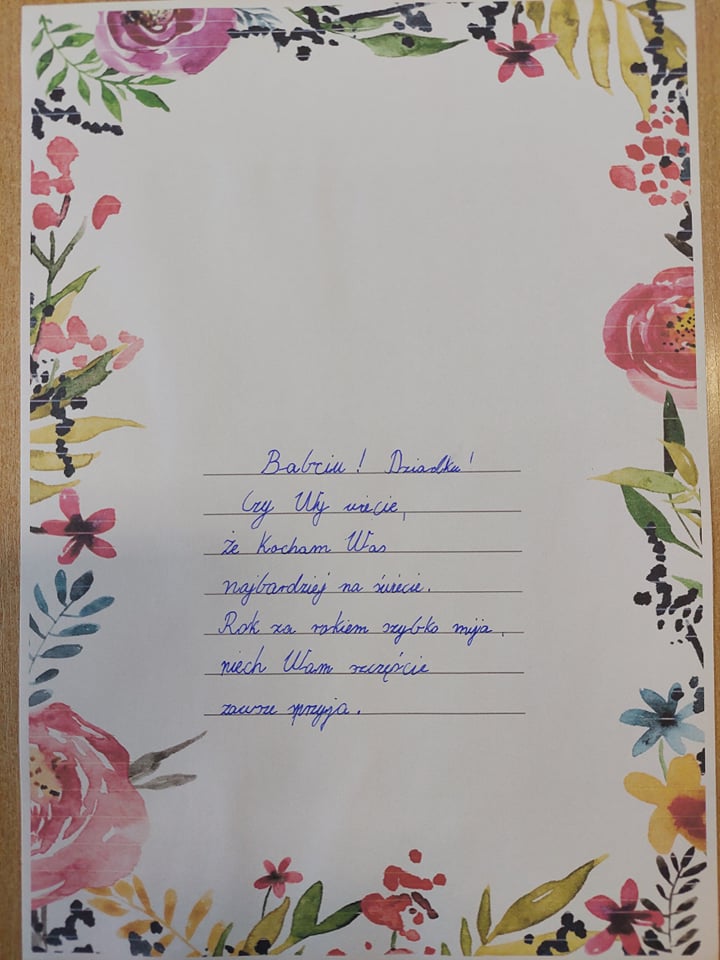 Babciu! Dziadku!
Czy Wy wiecie,
że Kocham Was
najbardziej na świecie.
Rok za rokiem szybko mija,
niech Wam szczęście
zawsze sprzyja.